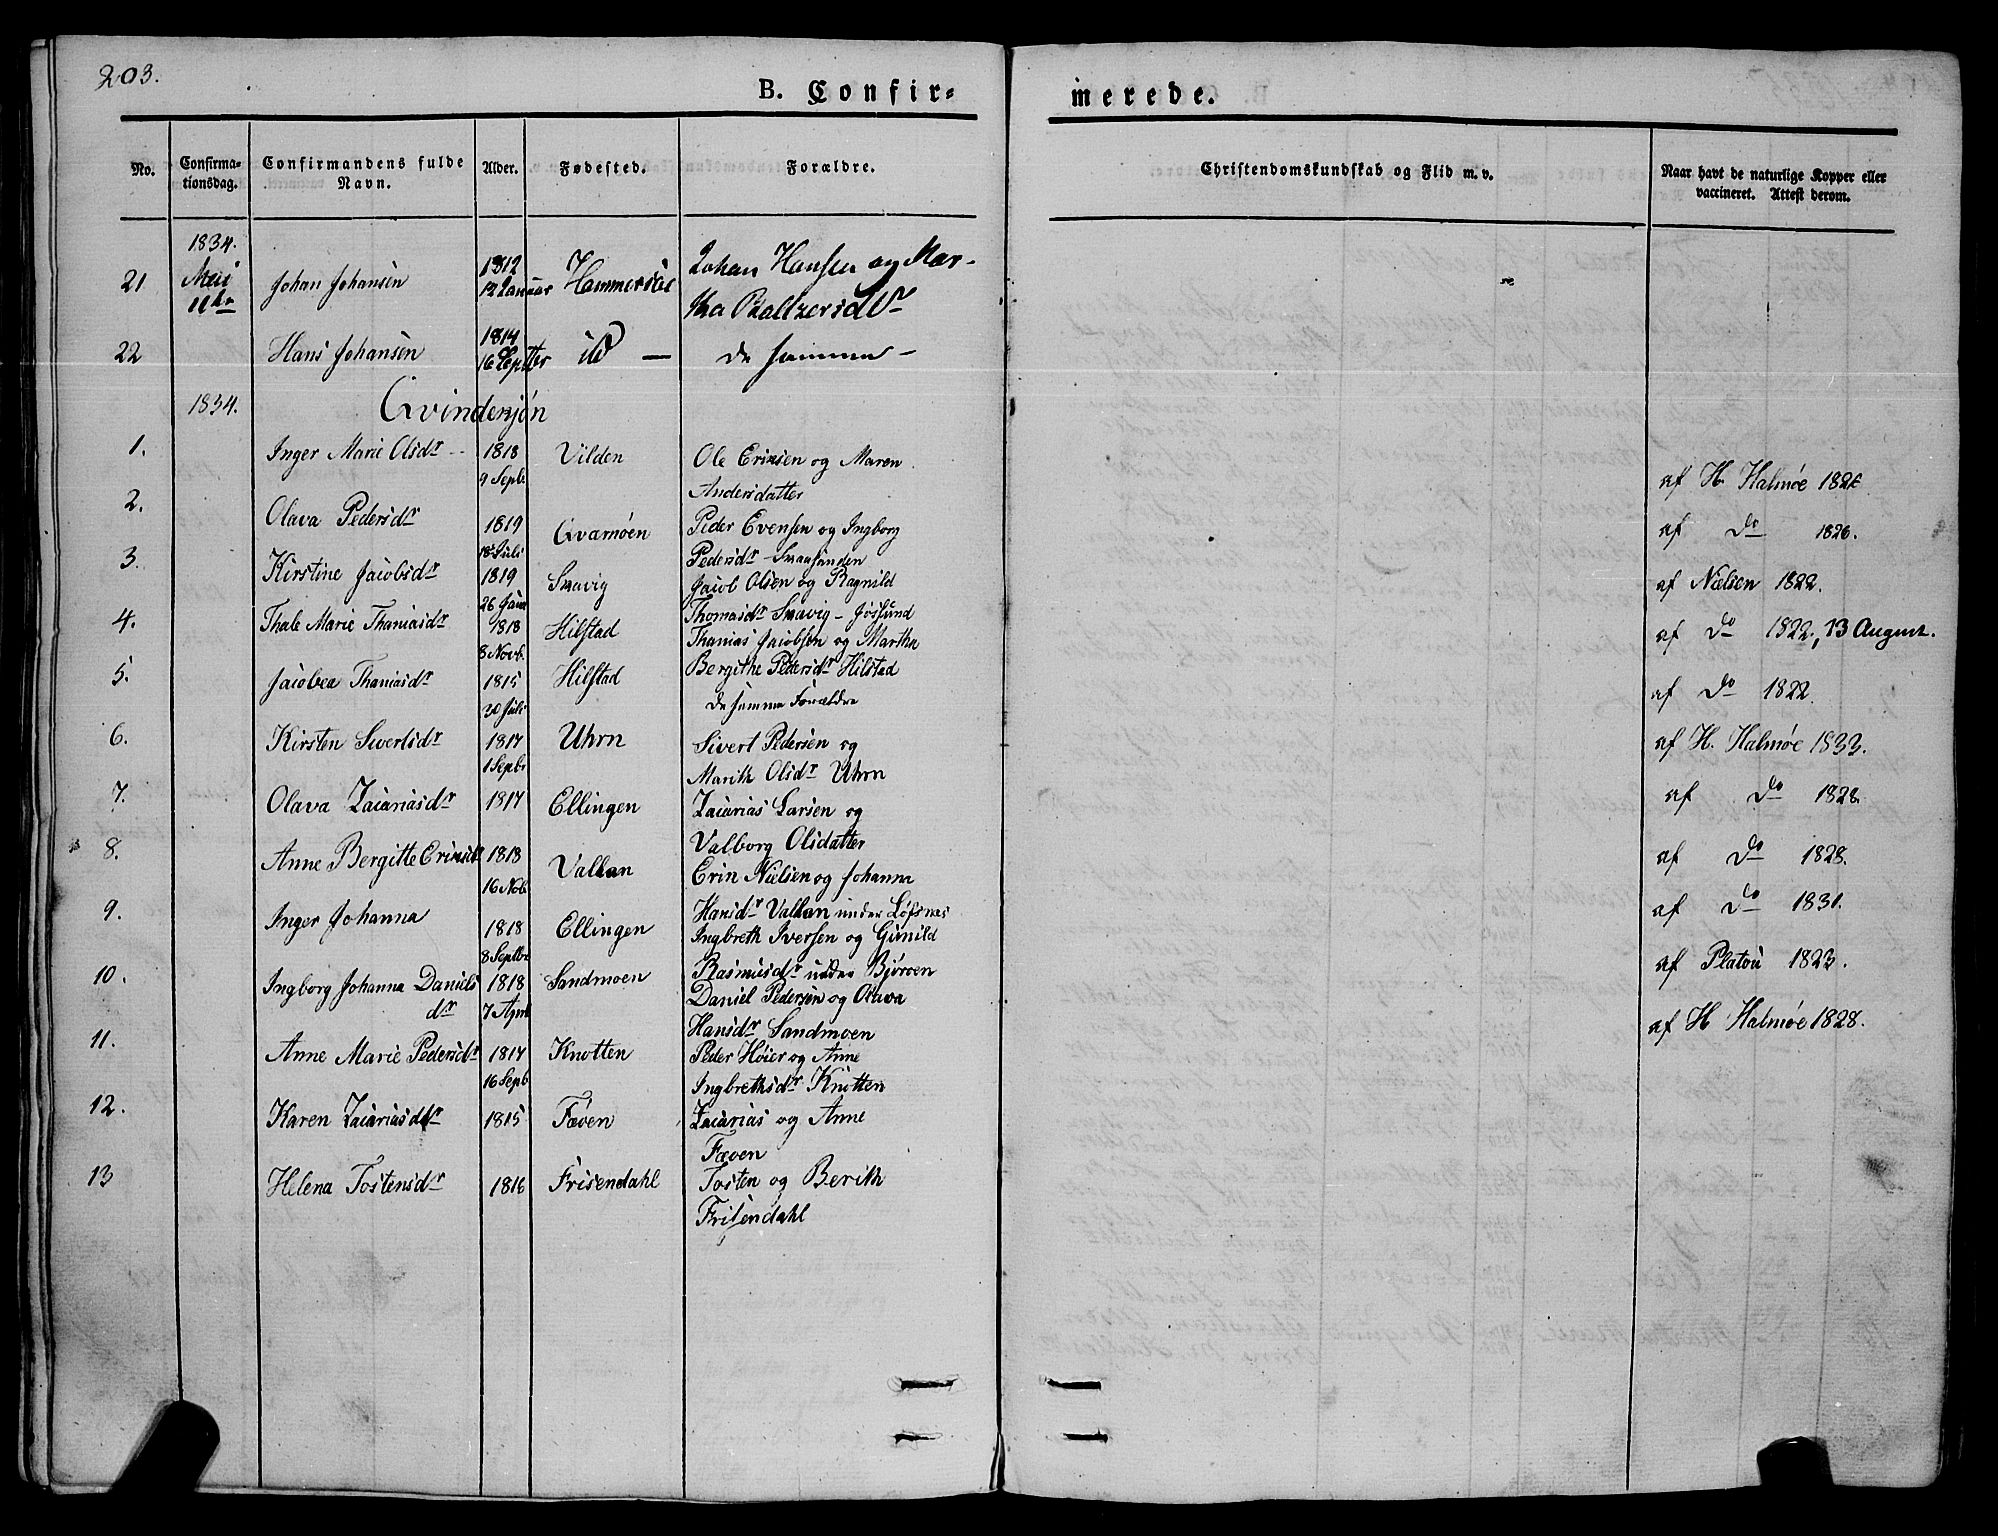 203.
B. Confir-
merede.
No.
Confirma-
tionsdag.
Confirmandens fulde
Navn.
Alder.
Fødested.
Forældre.
Christendomskundskab og Flid m. v.
Naar havt de naturlige Kopper eller
vaccineret. Attest derom.
1834.
21 Mai Johan Johansen 1812 12 Januar Johan Hansen og Mar-
tha Baltzersdtr
22 Hans Johansen 1814 16 Septter id — de samme —
1834. Qvindekjön
1. Inger Marie Olsdr -- 1818 Vilden Ole Ericsen og Maren
9 Septb. Andersdatter af H. Halmøe
2. Olava Pedersdr 1819 Qvamøen Peder Evensen og Ingborg
18 Juli Pedersdr - Smaasunden af Do 1826.
3. Kirstine Jacobsdr 1819 Smavig Jacob Olsen og Ragnild
26 Janr Thomasdr Smavig - Jøssund af Nielsen 1822.
4. Thale Marie Thaniasdr 1818 Hilstad Thanias Jacobsen og Martha
8 Novb. Bergithe Pedersdr Hilstad af Do 1822, 13 August.
5. Jacobea Thaniasdr 1815 Hilstad
30 Juli de samme Forældre af Do 1822.
6. Kirsten Sivertsdr 1817 Uhrn Sivert Pedersen og
1 Septbr Marith Olsdr Uhrn af H. Halmøe 1833.
7. Olava Zacariasdr 1817 Ellingen Zacarias Larsen og
Valborg Olsdatter af Do 1828.
8. Anne Bergitte Ericsdr 1818 Vallan Eric Nielsen og Johanna
16 Nob. Hansdr Vallan under Løfsnæs af Do 1828.
9. Inger Johanna 1818 Ellingen Ingbreth Iversen og Gunild
8 Septbr Rasmusdr under Bjøroen af Do 1831.
10. Ingborg Johanna Daniels 1818 Sandmoen Daniel Pedersen og Olava
dr 7 April Hansdr Sandmoen af Platou 1823.
11. Anne Marie Pedersdr 1817 Knotten Peder Høier og Anne
16 Septb Ingbrethsdr Knotten af H Halmøe 1828.
12. Karen Zacariasdtr 1815 Fæven Zacarias og Anne
Fæven
13 Helena Tostensdr 1816 Frisendahl Tosten og Berith
Frisendahl